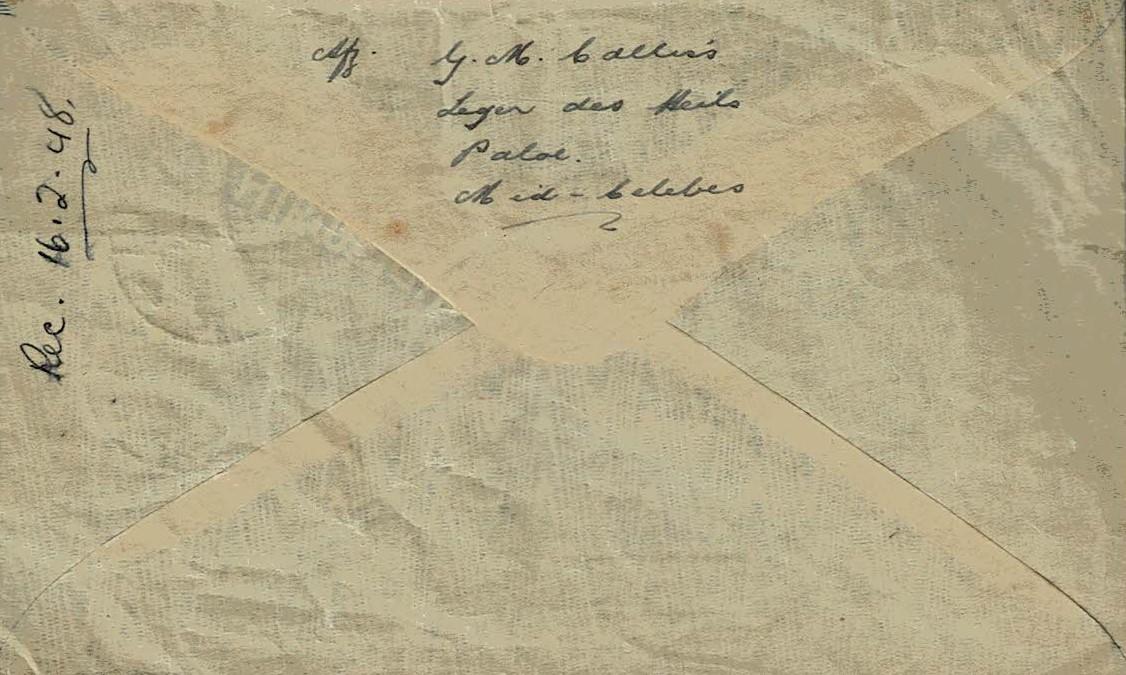 Afz. G. M. Calliss
Leger des Heils
Paloe.
Mid-Celebes
Rec. 16.2.48.